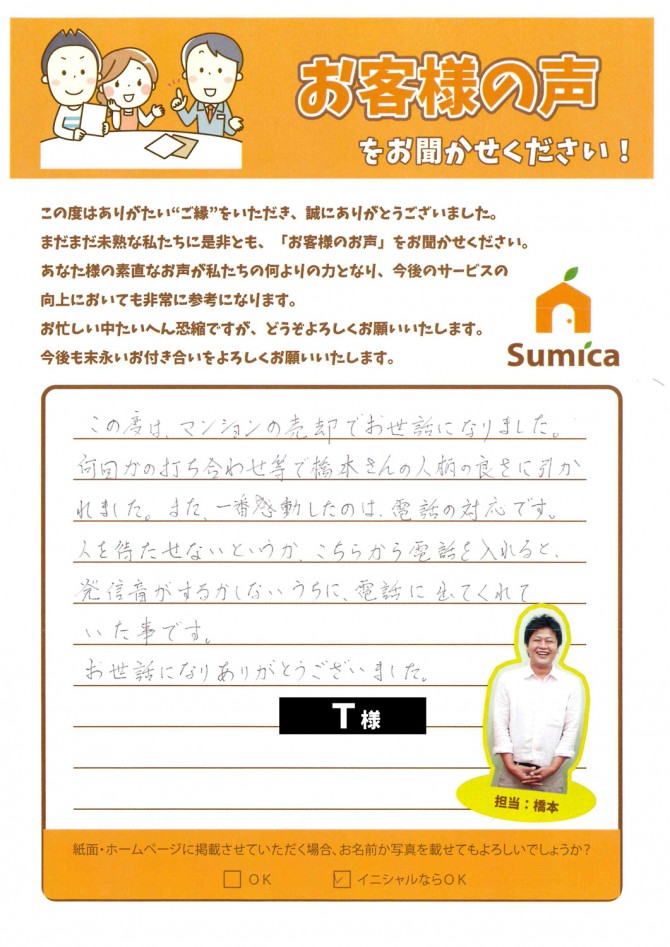 お客様の声
をお聞かせください！
この度はありがたい“ご縁”をいただき、誠にありがとうございました。
まだまだ未熟な私たちに是非とも、「お客様のお声」をお聞かせください。
あなた様の素直なお声が私たちの何よりの力となり、今後のサービスの
向上においても非常に参考になります。
お忙しい中たいへん恐縮ですが、どうぞよろしくお願いいたします。
今後も末永いお付き合いをよろしくお願いいたします。
Sumica
この度は、マンションの売却でお世話になりました。
何回かの打ち合わせ等で橋本さんの人柄の良さに引か
れました。また、一番感動したのは、電話の対応です。
人を待たせないというか、こちらから電話を入れると、
発信音がするかしないうちに、電話に出てくれて
いた事です。
お世話になりありがとうございました。
T様
担当：橋本
紙面・ホームページに掲載させていただく場合、お名前か写真を載せてもよろしいでしょうか？
OK
イニシャルならOK